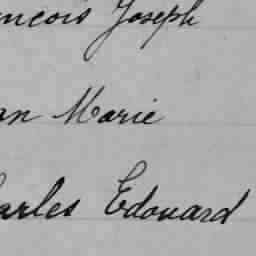 ncois Joseph
an Marie
arles Edouard